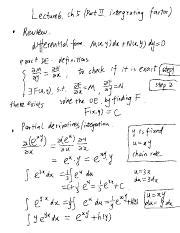 Lecture 6, ch 5 (Part II integrating factor)
• Review.
differential form. M(x,y)dx + N(x,y)dy = 0
exact DE. definition
{ ∂M/∂y = ∂N/∂x to check if it is exact step 1
∃ F(x,y), s.t. ∂F/∂x = M, ∂F/∂y = N step 2
there exists solve the DE, by finding F
F(x,y) = C
• Partial derivatives/integration
∂(e^xy)/∂x = ∂(e^xy)/∂x y is fixed
u = xy
= e^xy · y = e^xy · y chain rule
∫ e^3x dx = ∫ e^u · 1/3 du u = 3x
du = 3dx
= 1/3 e^u = 1/3 e^3x + C
∫ e^xy dx = ∫ e^u 1/y du = 1/y e^xy + h(y) u = xy
du = y dx
∫ y e^xy dx = e^xy + h(y)